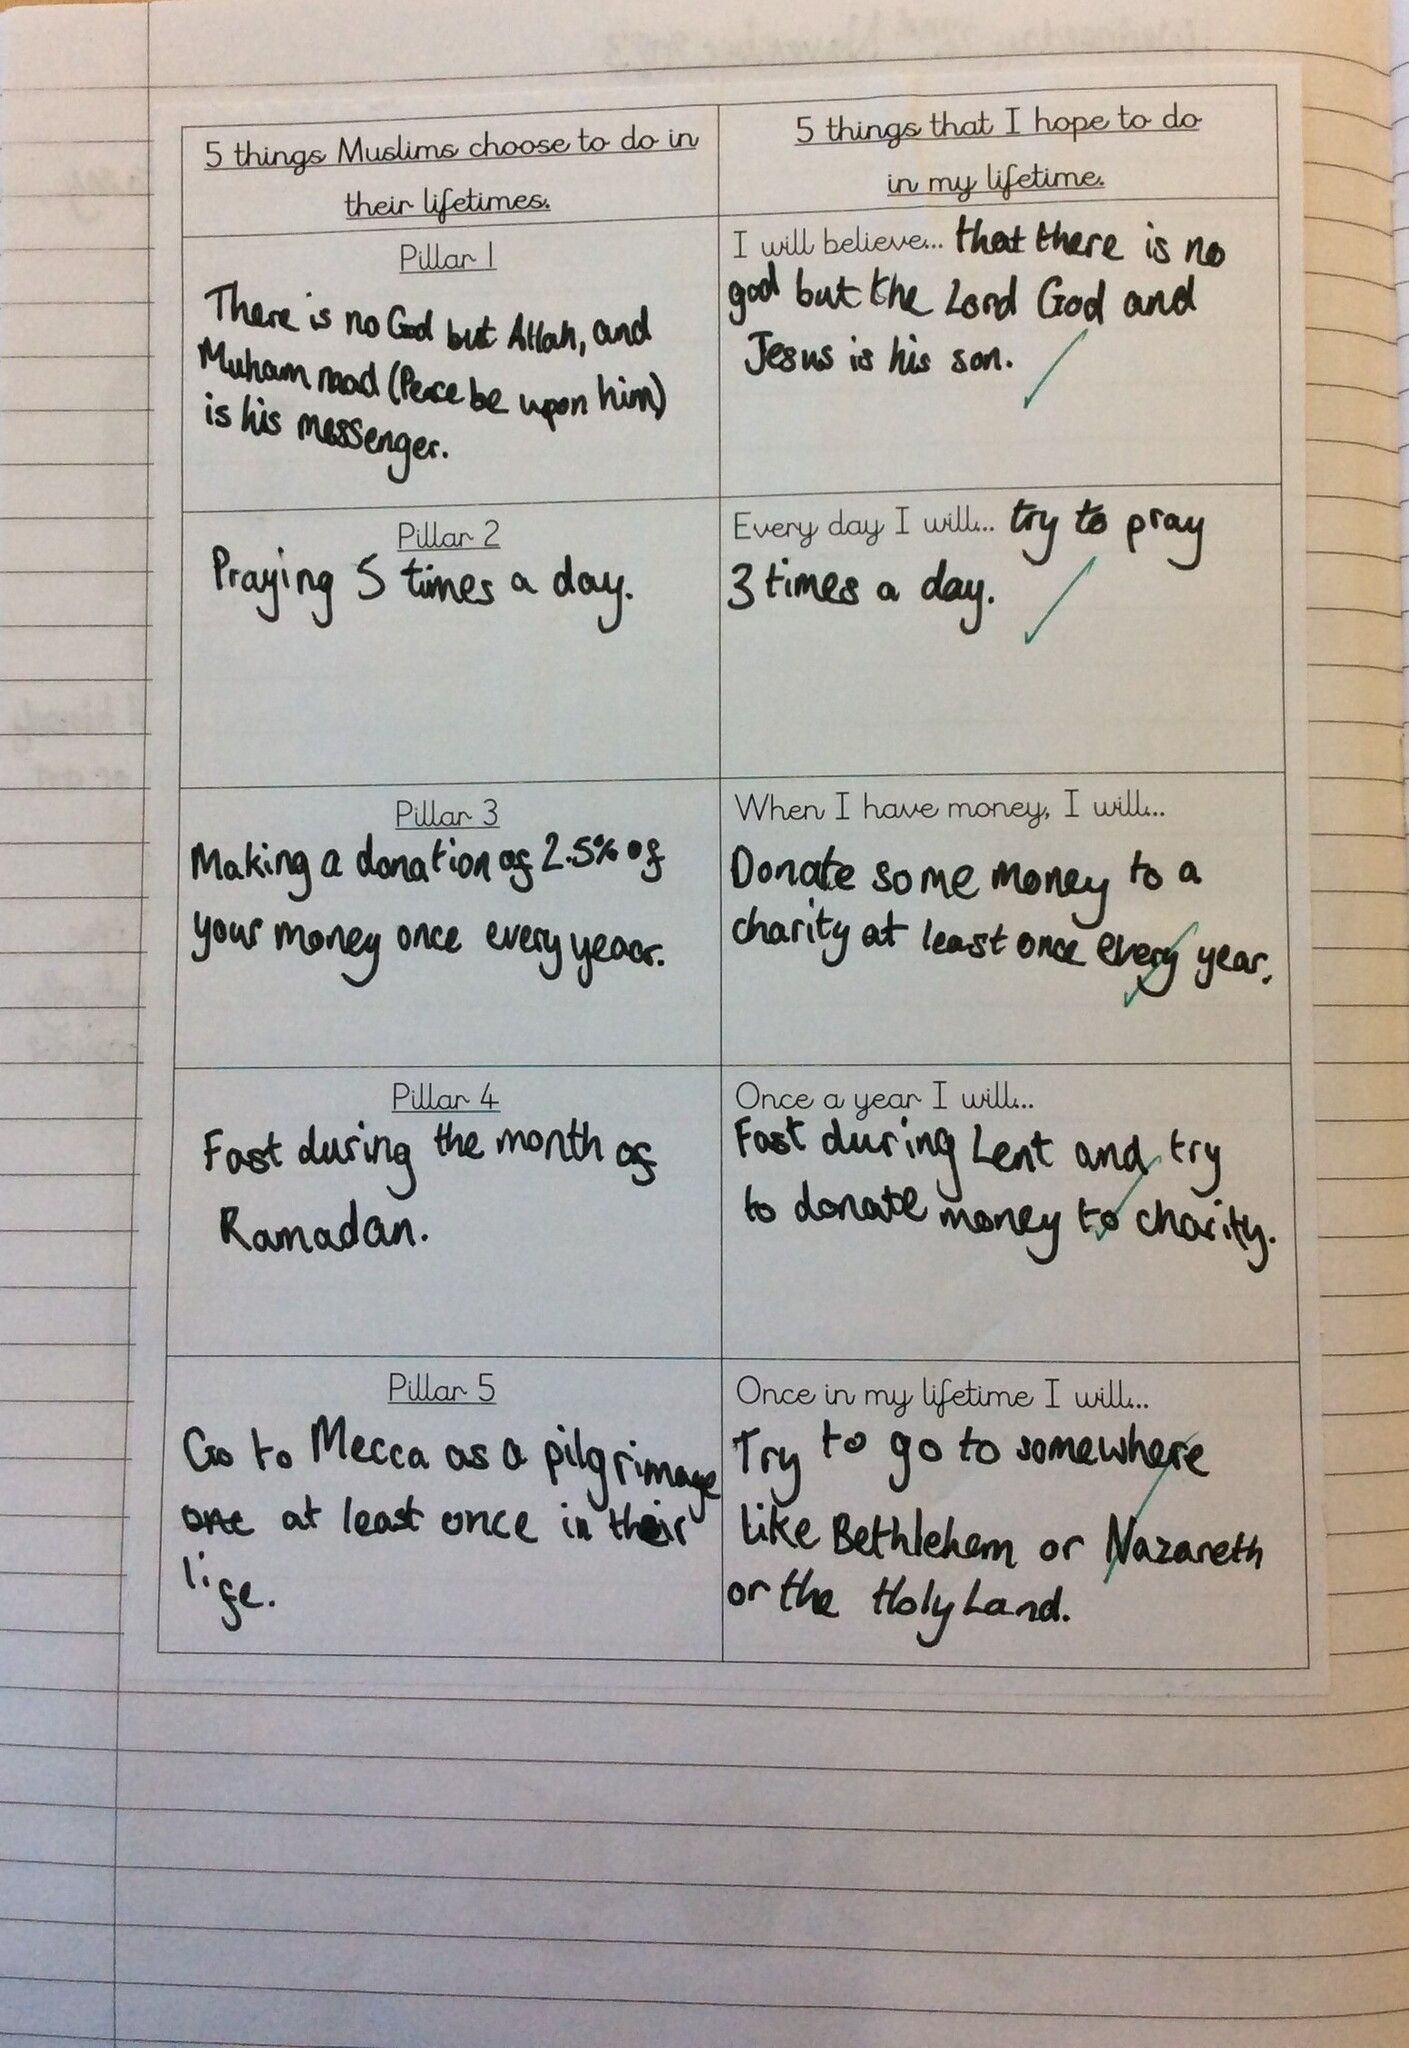 5 things Muslims choose to do in
their lifetimes.
5 things that I hope to do
in my lifetime.
Pillar 1
There is no God but Allah, and
Muhammad (Peace be upon him)
is his messenger.
I will believe... that there is no
god but the Lord God and
Jesus is his son.
Pillar 2
Praying 5 times a day.
Every day I will... try to pray
3 times a day.
Pillar 3
Making a donation of 2.5% of
your money once every year.
When I have money, I will...
Donate some money to a
charity at least once every year.
Pillar 4
Fast during the month of
Ramadan.
Once a year I will...
Fast during Lent and try
to donate money to charity.
Pillar 5
Go to Mecca as a pilgrimage
one at least once in their
life.
Once in my lifetime I will...
Try to go to somewhere
like Bethlehem or Nazareth
or the Holy Land.